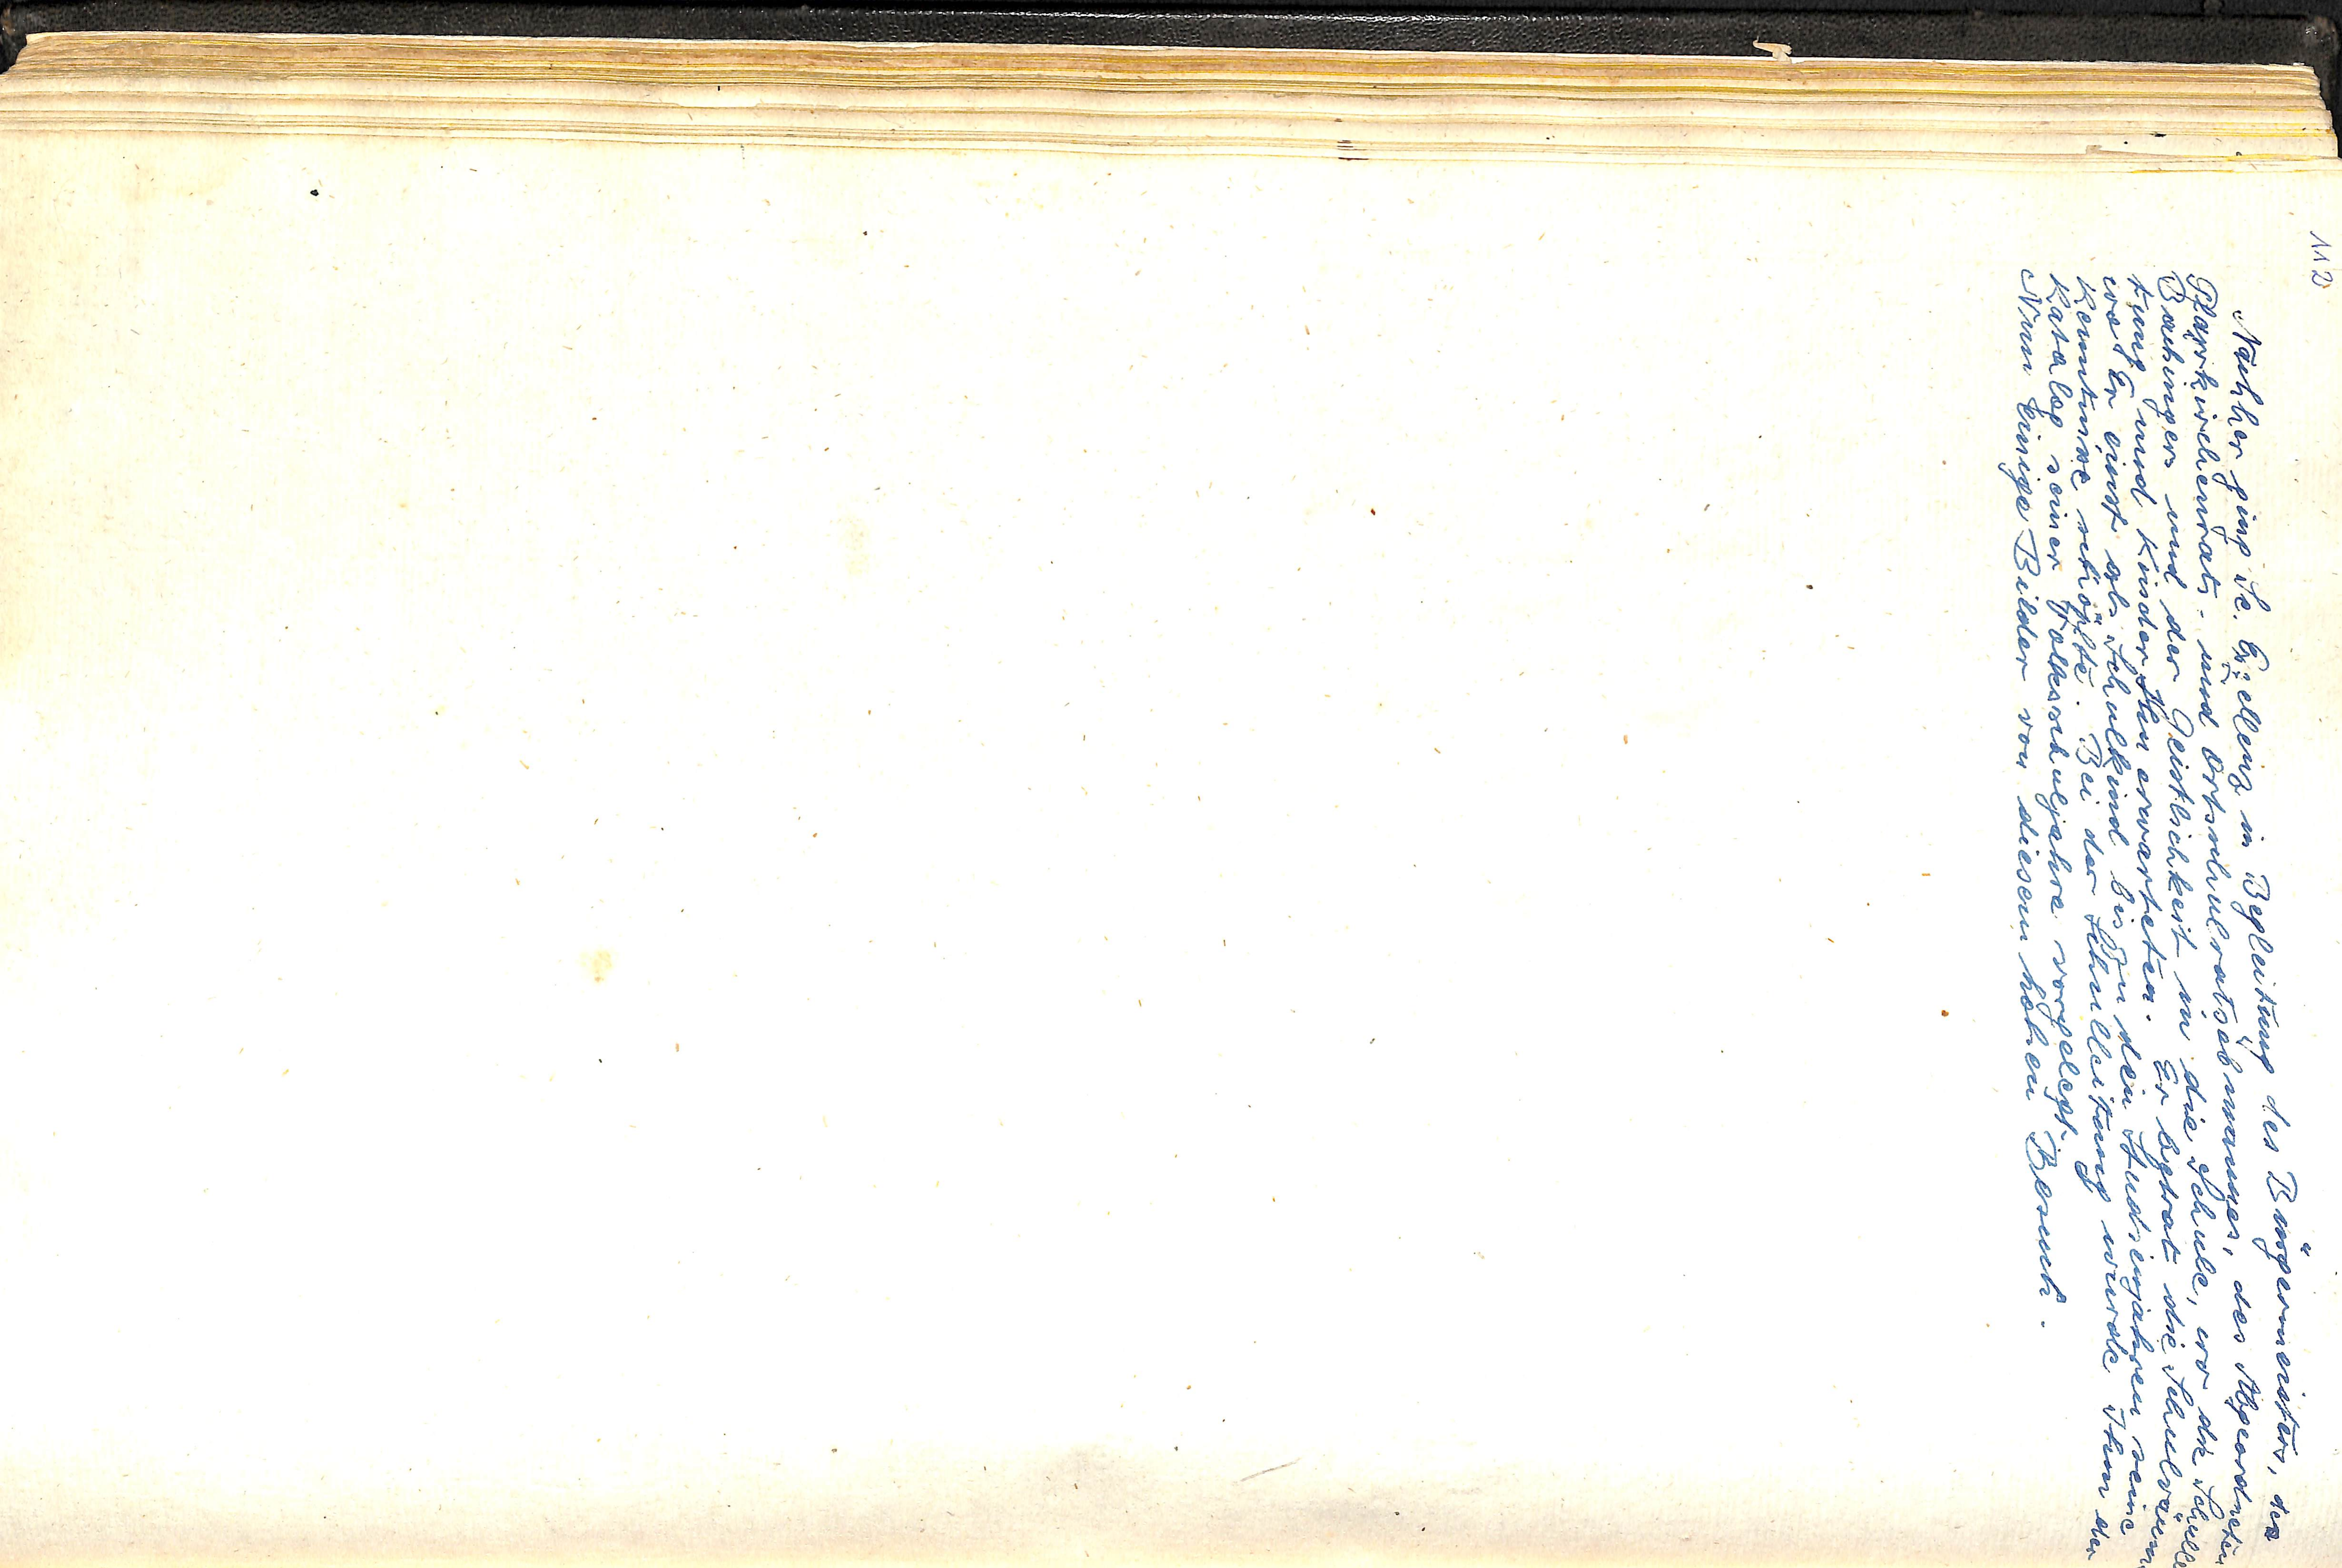 112
Nachher ging Se. Exzellenz in Begleitung des Bürgermeisters, des
Pfarrkirchenrats- und Ortsschulratsobmannes, des Abgeordneten
Bachinger und der Geistlichkeit in die Schule, wo die Schullei
tung und Kinder Ihn erwarteten. Er betrat die Schulräume
wo Er einst als Schulkind bis zu den Studienjahren seine
Kenntnisse schöpfte. Bei der Schulleitung wurde Ihm der
Katalog seiner Volksschuljahre vorgelegt.
Nun einige Bilder von diesem hohen Besuch.